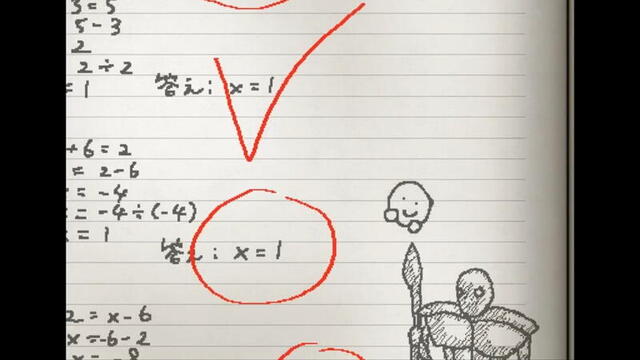 3 = 5
5 - 3
2
2 ÷ 2
= 1 答え: x = 1
+ 6 = 2
= 2 - 6
= -4
= -4 ÷ (-4)
= 1 答え: x = 1
2 = x - 6
x = -6 - 2
x = -8